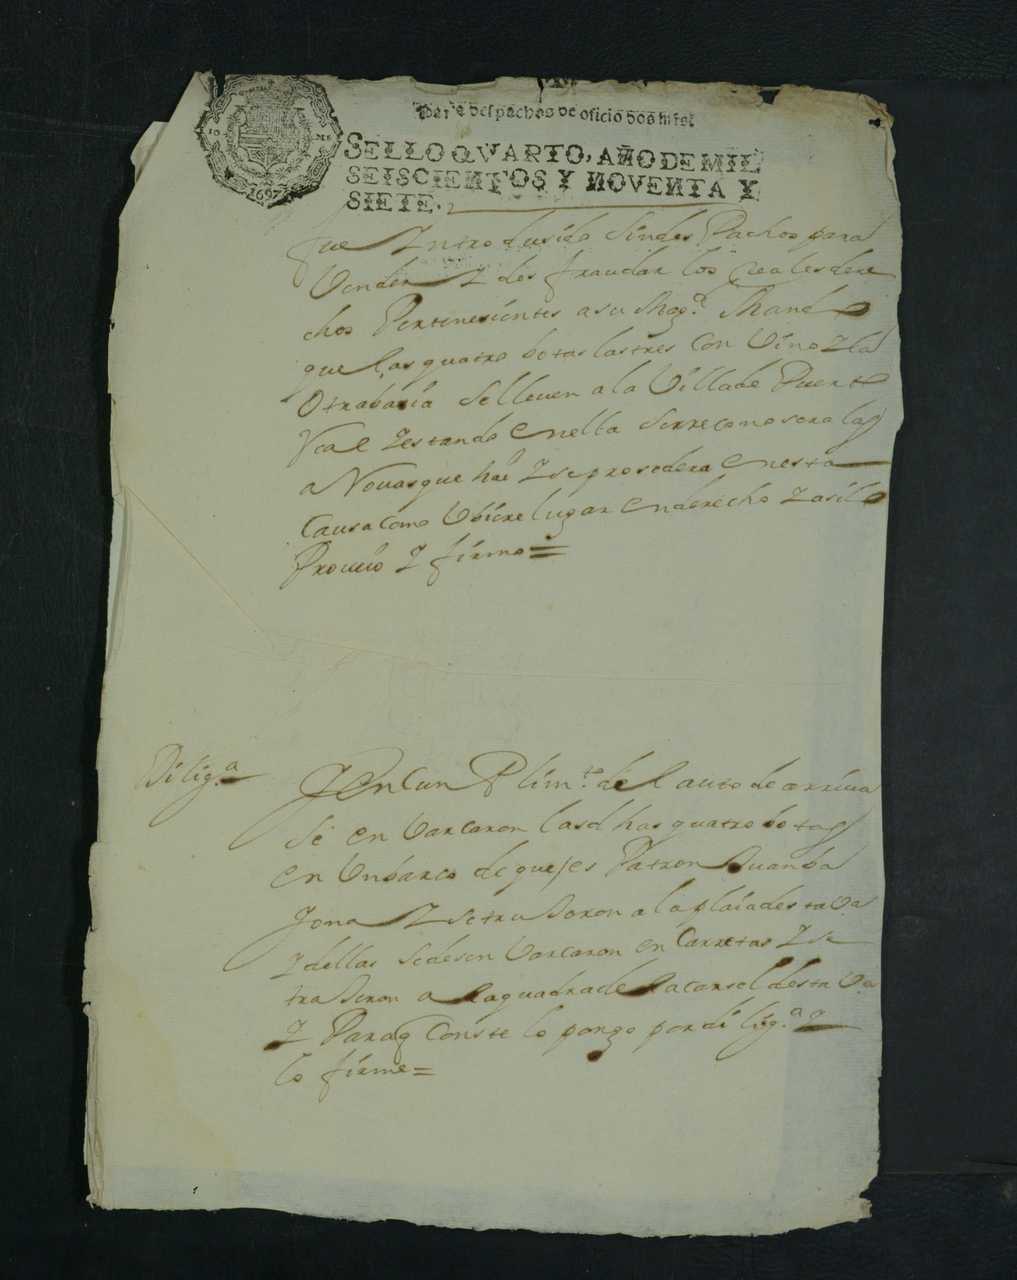 Para despachos de oficio dos mrs.
SELLO QVARTO, AÑO DE MIL
SEISCIENTOS Y NOVENTA Y
SIETE.
1697
fue Introdusido sindes Pachos para
Vender Y des fraudar los rreales dere
chos Pertenesientes a su Mag.d Mando
que las quatro botas las tres Con Vino Y la
Otra basia se lleven a la Villa de Puerto
Real Y estando en ella se rreconosera las
arrovas que hai Y se prosedera en esta
Causa Como Ubiere lugar en derecho Y asi lo
Proveio Y firmo =
Dilig.a
Y En Cun Plim.to del auto de arriva
se en barcaron las dhas quatro botas
en Un barco de que es Patron Juan ba
Jona Y se truxeron a la plaia desta Va
Y dellas se desen barcaron en Carretas Y se
truxeron a la quadra de la carsel desta Va
Y Para q Conste lo pongo por dilig.a Y
lo firme =